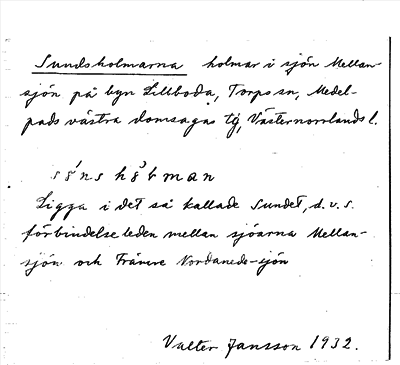 Sundsholmarna holmar i sjön Mellan-
sjön på byn Lillboda, Torps sn, Medel-
pads västra domsagas tg, Västernorrlands l.
sṍns hǒ̀lman
Ligga i det så kallade Sundet, d.v.s.
förbindelseleden mellan sjöarna Mellan-
sjön och Främre Nordanede-sjön
Valter Jansson 1932.